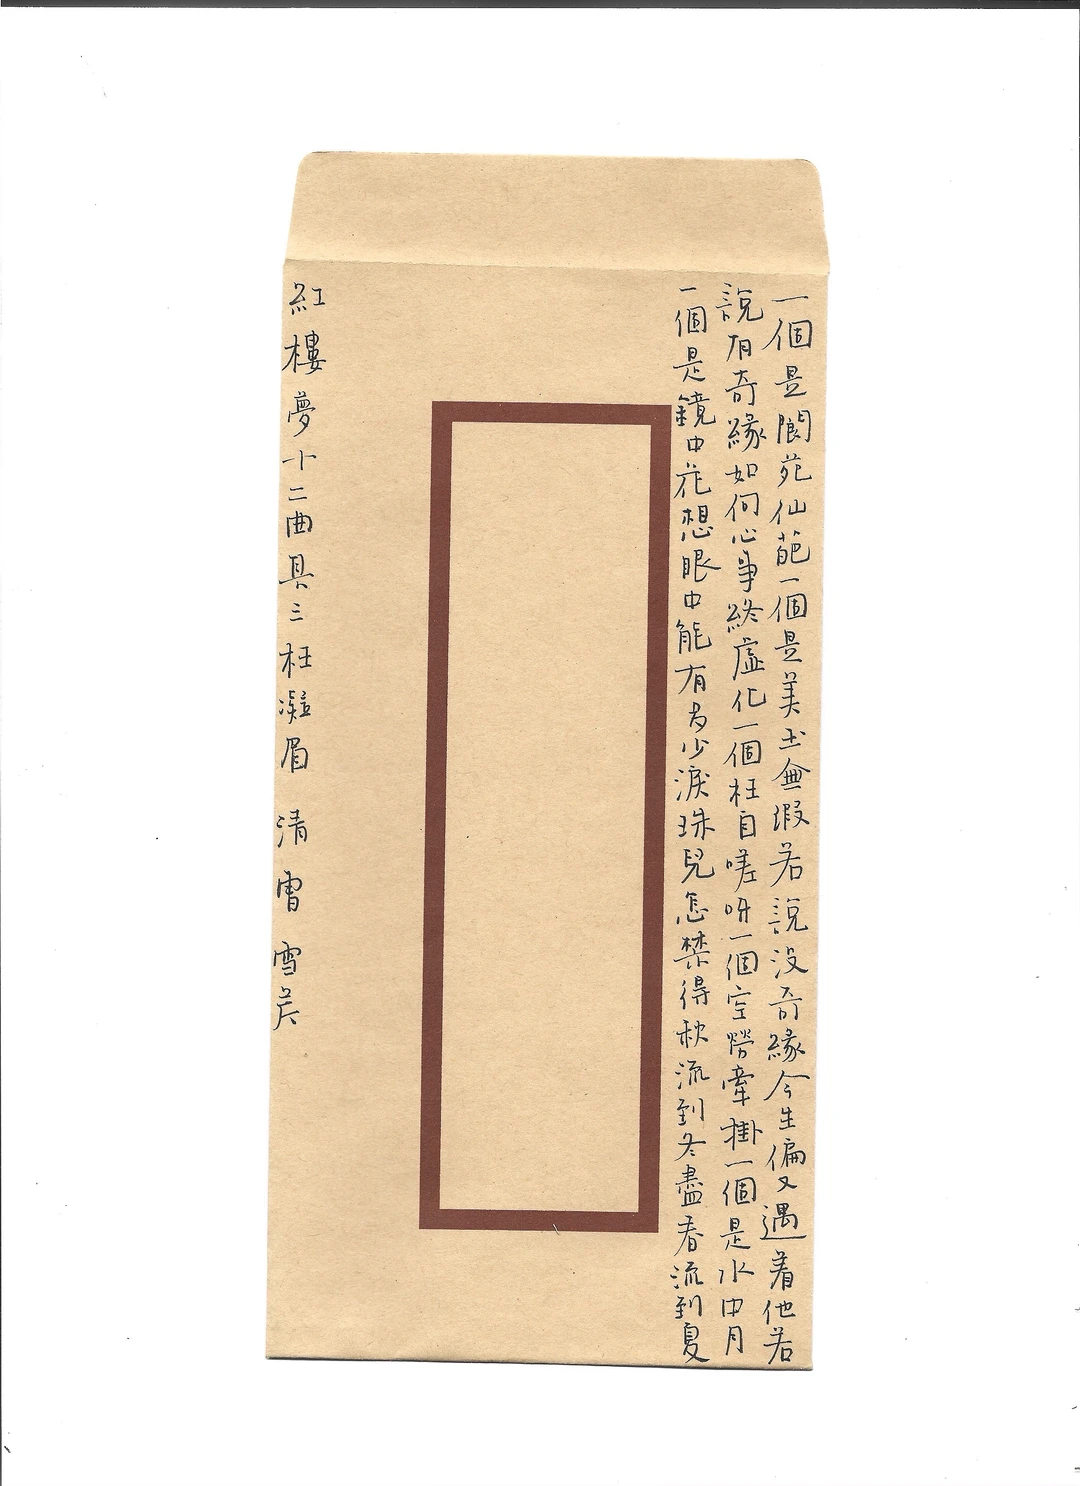 一個是閬苑仙葩一個是美玉無瑕若說沒奇緣今生偏又遇着他若
說有奇緣如何心事終虛化一個枉自嗟呀一個空勞牽掛一個是水中月
一個是鏡中花想眼中能有多少淚珠兒怎禁得秋流到冬盡春流到夏
紅樓夢十二曲其三枉凝眉 清 曹 雪芹